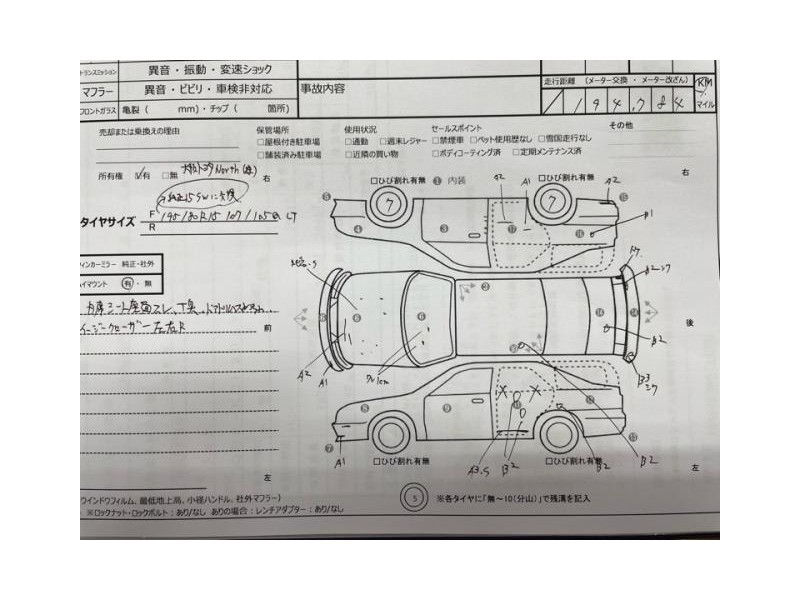 トランスミッション 異音・振動・変速ショック
マフラー 異音・ビビリ・車検非対応 事故内容
走行距離 (メーター交換 ・ メーター改ざん)
フロントガラス 亀裂 ( mm)・チップ ( 箇所)
1 9 4 , 7 8 4 KM マイル
売却または乗換えの理由 保管場所 使用状況 セールスポイント その他
□屋根付き駐車場 □通勤 □週末レジャー □禁煙車 □ペット使用歴なし □雪国走行なし
□舗装済み駐車場 □近隣の買い物 □ボディコーティング済 □定期メンテナンス済
所有権 ☑有 □無 North 右 右
□ひび割れ有無 ⑪ 内装 □ひび割れ有無
タイヤサイズ F 195/80R15 107/105 LT
R
ウィンカーミラー 純正・社外
ハイマウント 有・無
イージークローザー 左右R
前 後
7 7
A2 A1 A2
B1
B2
A2 A1
B2
B3
A1 A3.S B2 B2 B2
□ひび割れ有無 □ひび割れ有無
左 左
ウインドウフィルム、最低地上高、小径ハンドル、社外マフラー)
※ロックナット・ロックボルト：あり/なし ありの場合：レンチアダプター：あり/なし
5 ※各タイヤに「無～10(分山)」で残溝を記入